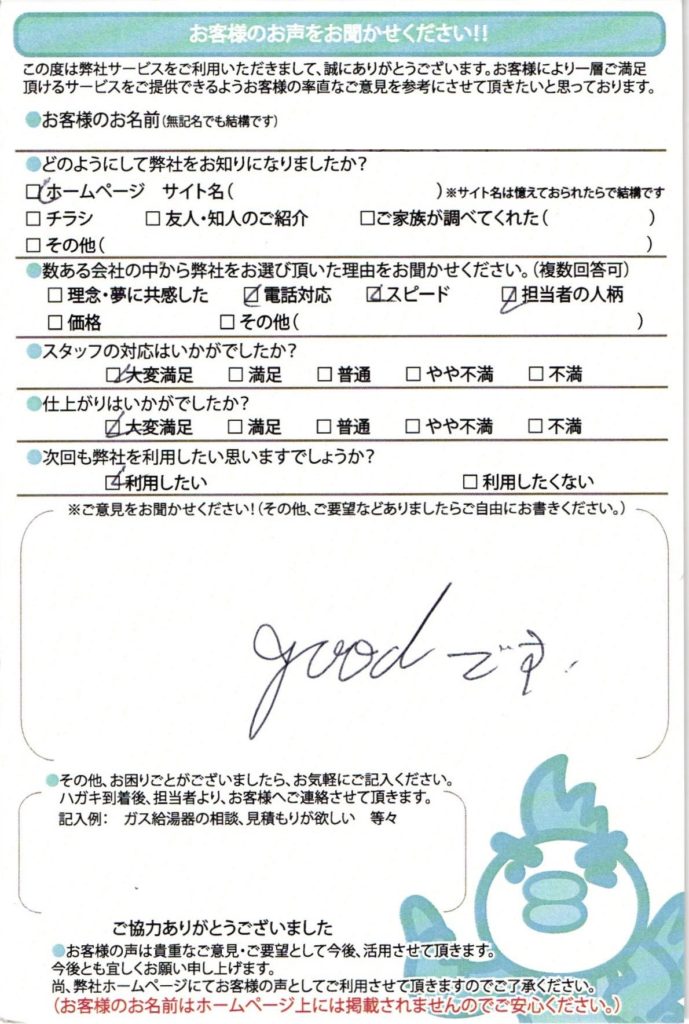 お客様のお声をお聞かせください!!
この度は弊社サービスをご利用いただきまして、誠にありがとうございます。お客様により一層ご満足
頂けるサービスをご提供できるようお客様の率直なご意見を参考にさせて頂きたいと思っております。
●お客様のお名前(無記名でも結構です)
●どのようにして弊社をお知りになりましたか?
☑ホームページ サイト名( )※サイト名は憶えておられたらで結構です
□チラシ □友人・知人のご紹介 □ご家族が調べてくれた( )
□その他( )
●数ある会社の中から弊社をお選び頂いた理由をお聞かせください。(複数回答可)
□理念・夢に共感した ☑電話対応 ☑スピード ☑担当者の人柄
□価格 □その他( )
●スタッフの対応はいかがでしたか?
☑大変満足 □満足 □普通 □やや不満 □不満
●仕上がりはいかがでしたか?
☑大変満足 □満足 □普通 □やや不満 □不満
●次回も弊社を利用したい思いますでしょうか?
☑利用したい □利用したくない
※ご意見をお聞かせください!(その他、ご要望などありましたらご自由にお書きください。)
goodです.
●その他、お困りごとがございましたら、お気軽にご記入ください。
ハガキ到着後、担当者より、お客様へご連絡させて頂きます。
記入例: ガス給湯器の相談、見積もりが欲しい 等々
ご協力ありがとうございました
●お客様の声は貴重なご意見・ご要望として今後、活用させて頂きます。
今後とも宜しくお願い申し上げます。
尚、弊社ホームページにてお客様の声としてご利用させて頂きますのでご了承ください。
(お客様のお名前はホームページ上には掲載されませんのでご安心ください。)